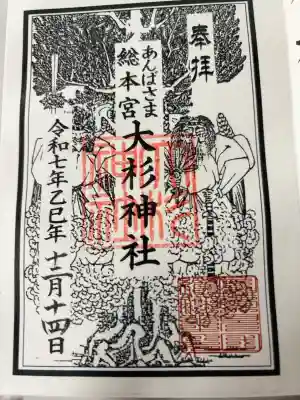 奉拝
あんばさま
総本宮
大杉神社
令和七年乙巳年 十二月十四日